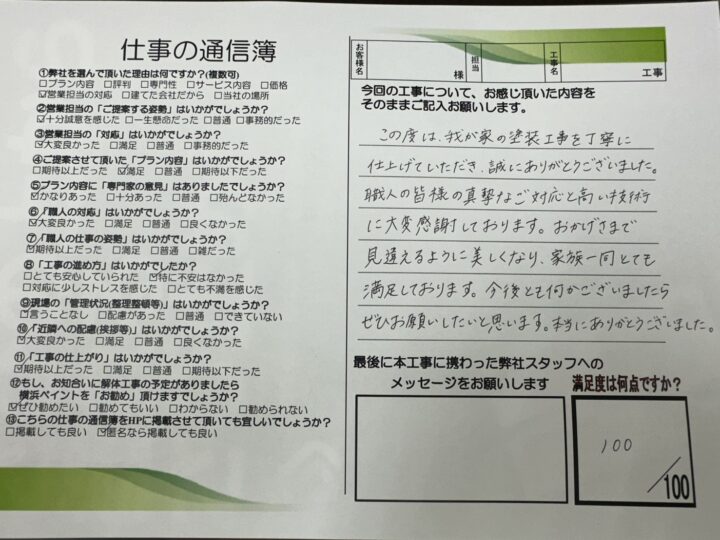 仕事の通信簿
①弊社を選んで頂いた理由は何ですか?(複数可)
□プラン内容 □評判 □専門性 □サービス内容 □価格
☑営業担当の対応 □建てた会社だから □当社の場所
②営業担当の「ご提案する姿勢」はいかがでしょうか?
☑十分誠意を感じた □一生懸命だった □普通 □事務的だった
③営業担当の「対応」はいかがでしょうか?
☑大変良かった □満足 □普通 □事務的だった
④ご提案させて頂いた「プラン内容」はいかがでしょうか?
□期待以上だった ☑満足 □普通 □期待以下だった
⑤プラン内容に「専門家の意見」はありましたでしょうか?
☑かなりあった □十分あった □普通 □殆んどなかった
⑥「職人の対応」はいかがでしょうか?
☑大変良かった □満足 □普通 □良くなかった
⑦「職人の仕事の姿勢」はいかがでしょうか?
☑期待以上だった □満足 □普通 □雑だった
⑧「工事の進め方」はいかがでしたか?
□とても安心していられた ☑特に不安はなかった
□対応に少しストレスを感じた □とても不満を感じた
⑨現場の「管理状況(整理整頓等)」はいかがでしょうか?
☑言うことなし □配慮があった □普通 □できていない
⑩「近隣への配慮(挨拶等)」はいかがでしょうか?
☑大変良かった □満足 □普通 □良くなかった
⑪「工事の仕上がり」はいかがでしょうか?
☑期待以上だった □満足 □普通 □期待以下だった
⑫もし、お知合いに解体工事の予定がありましたら
横浜ペイントを「お勧め」頂けますでしょうか?
☑ぜひ勧めたい □勧めてもいい □わからない □勧められない
⑬こちらの仕事の通信簿をHPに掲載させて頂いても宜しいでしょうか?
□掲載しても良い ☑匿名なら掲載しても良い
お客様名 様 担当 工事名 工事
今回の工事について、お感じ頂いた内容を
そのままご記入お願いします。
この度は、我が家の塗装工事を丁寧に
仕上げていただき、誠にありがとうございました。
職人の皆様の真摯なご対応と高い技術
に大変感謝しております。おかげさまで
見違えるように美しくなり、家族一同とても
満足しております。今後とも何かございましたら
ぜひお願いしたいと思います。本当にありがとうございました。
最後に本工事に携わった弊社スタッフへの
メッセージをお願いします
満足度は何点ですか?
100
/100